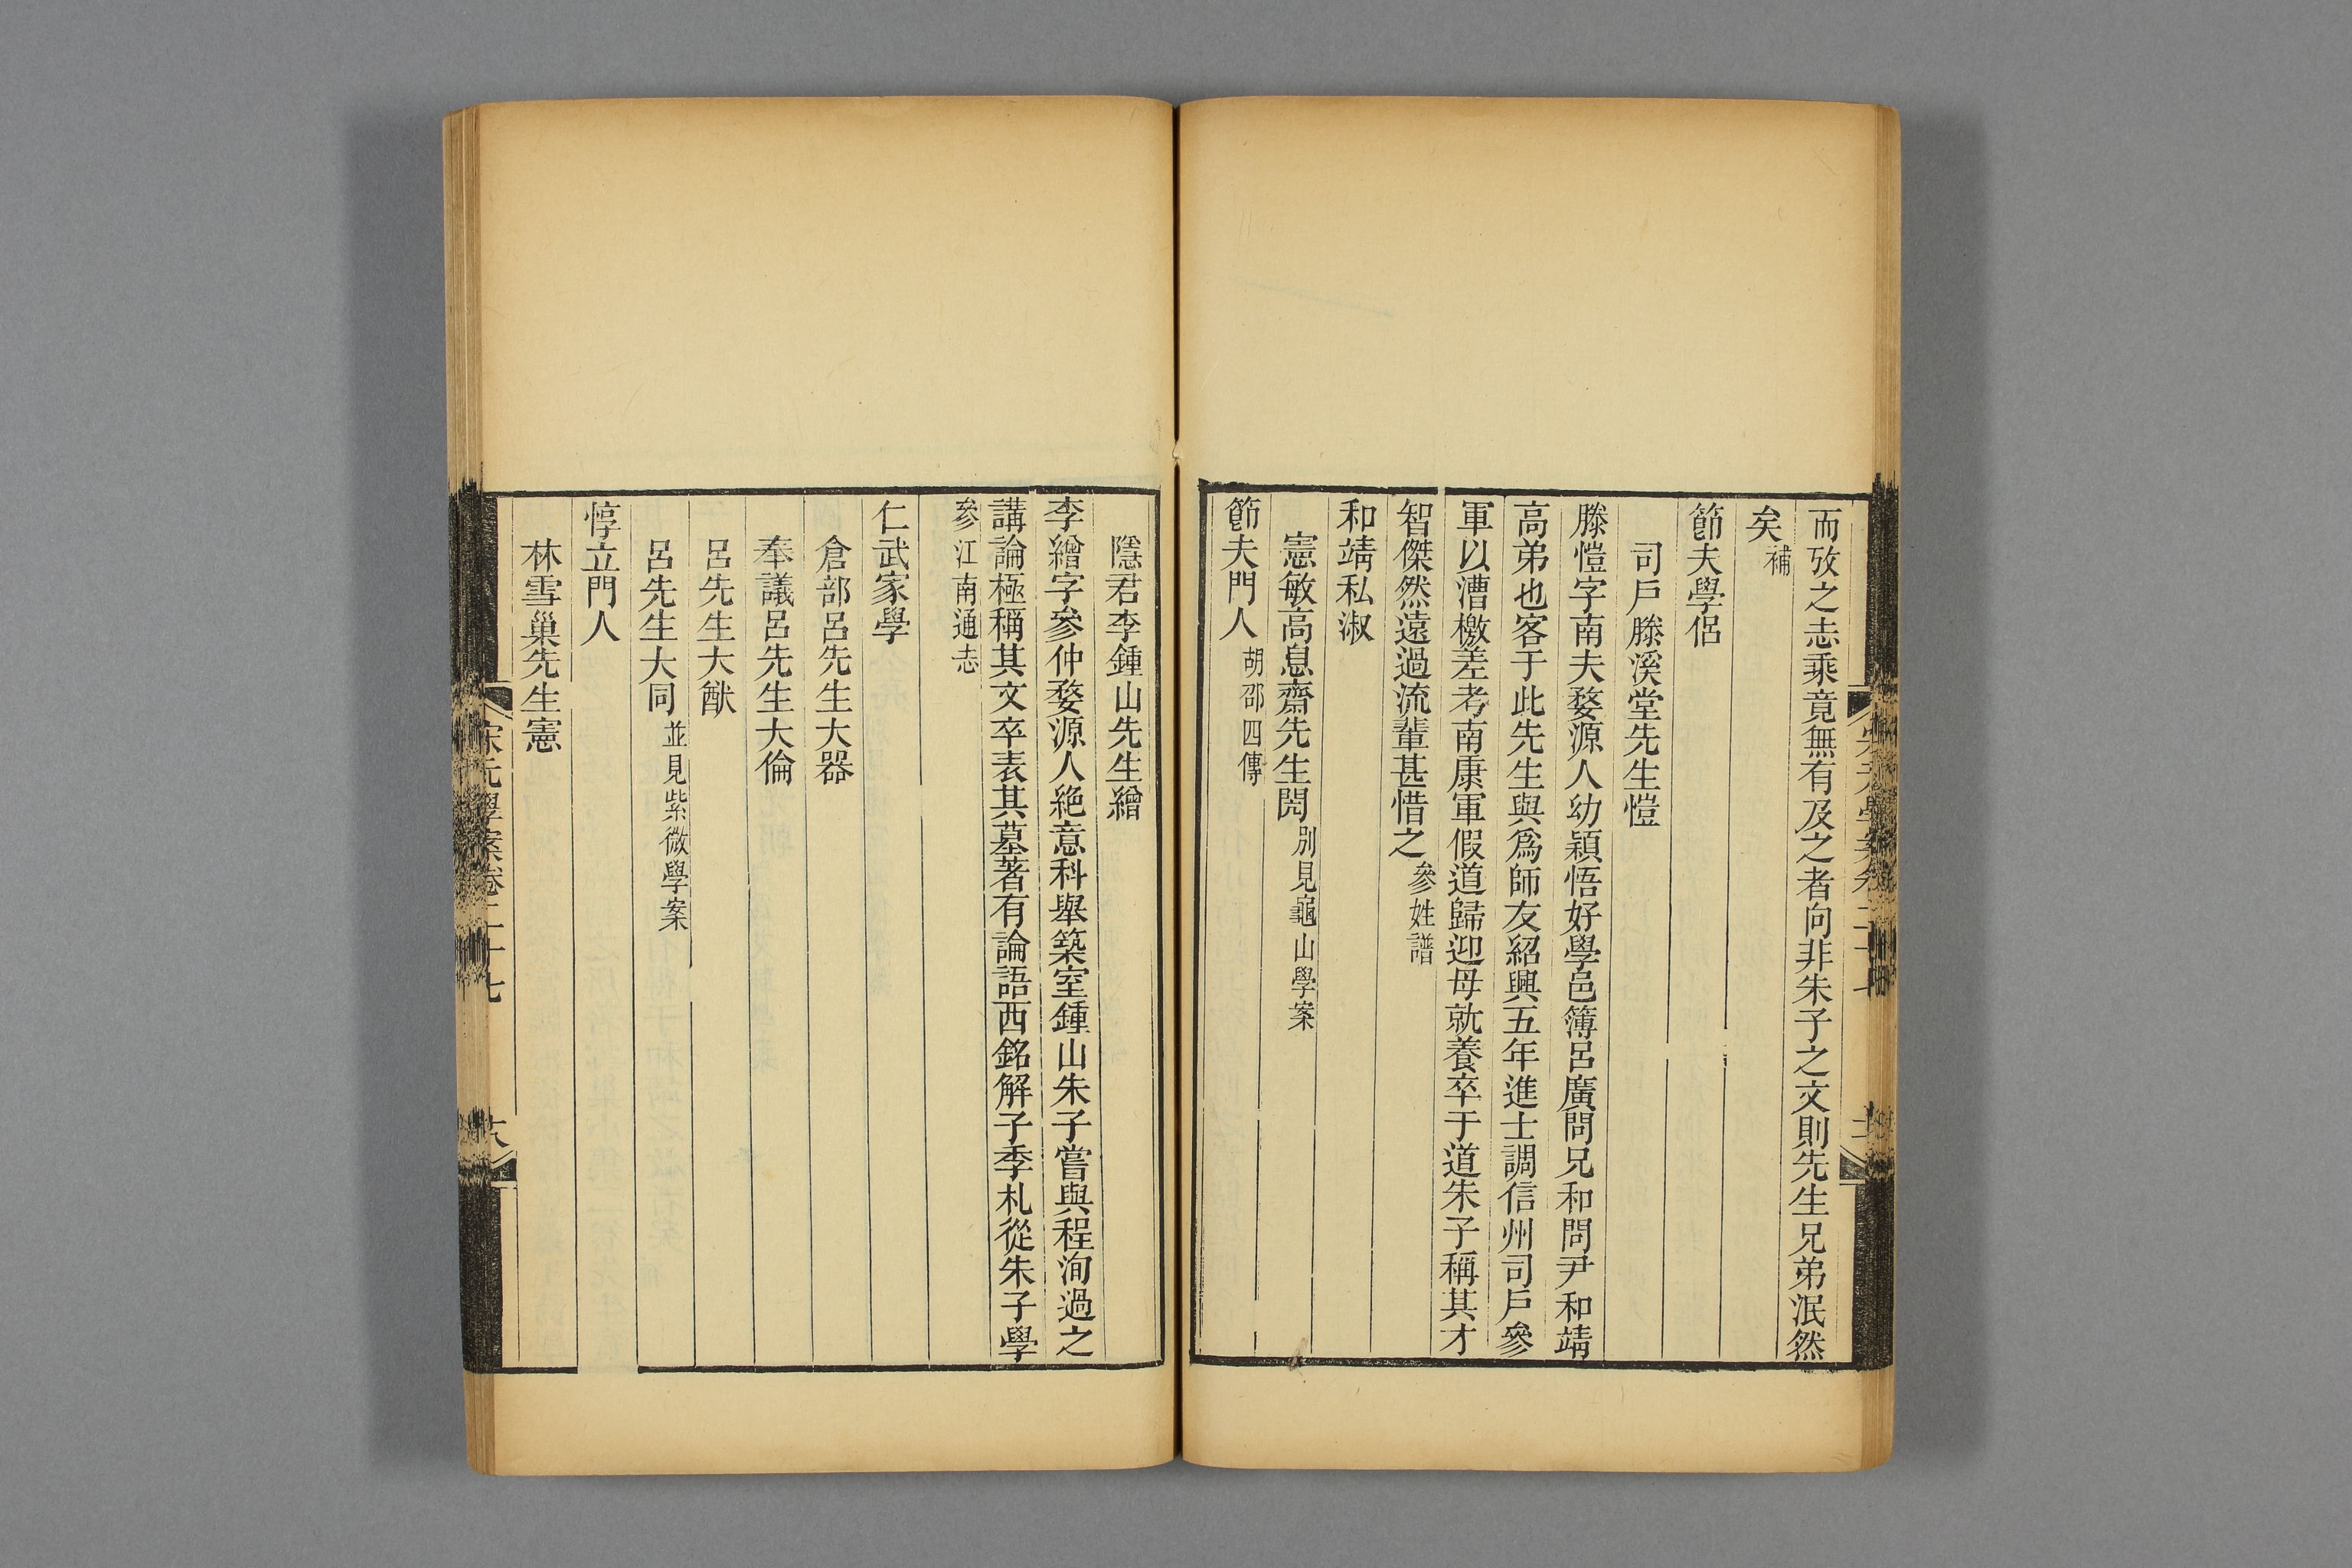 而攷之志乘竟無有及之者向非朱子之文則先生兄弟泯然
矣補
節夫學侶
司戶滕溪堂先生愷
滕愷字南夫婺源人幼穎悟好學邑簿呂廣問兄和問尹和靖
高弟也客于此先生與爲師友紹興五年進士調信州司戶參
軍以漕檄差考南康軍假道歸迎母就養卒于道朱子稱其才
智傑然遠過流輩甚惜之參姓譜
和靖私淑
憲敏高息齋先生閌別見龜山學案
節夫門人胡邵四傳
隱君李鍾山先生繒
李繒字參仲婺源人絶意科舉築室鍾山朱子嘗與程洵過之
講論極稱其文卒表其墓著有論語西銘解子季札從朱子學
參江南通志
仁武家學
倉部呂先生大器
奉議呂先生大倫
呂先生大猷
呂先生大同並見紫微學案
惇立門人
林雪巢先生憲
宋元學案卷二十七